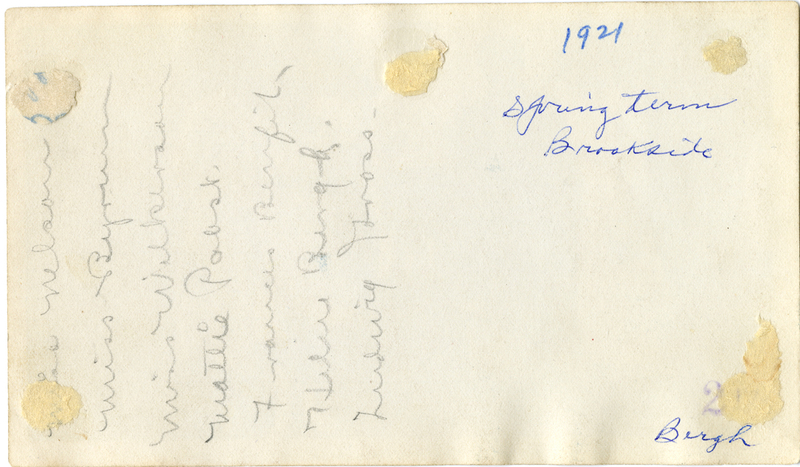 1921
Spring term
Brookside
Nelson
Miss Byrum
Miss Wilkerson
Mattie Pabst.
Frances Benfit,
Bergh.
Ludwig Gross.
2
Bergh